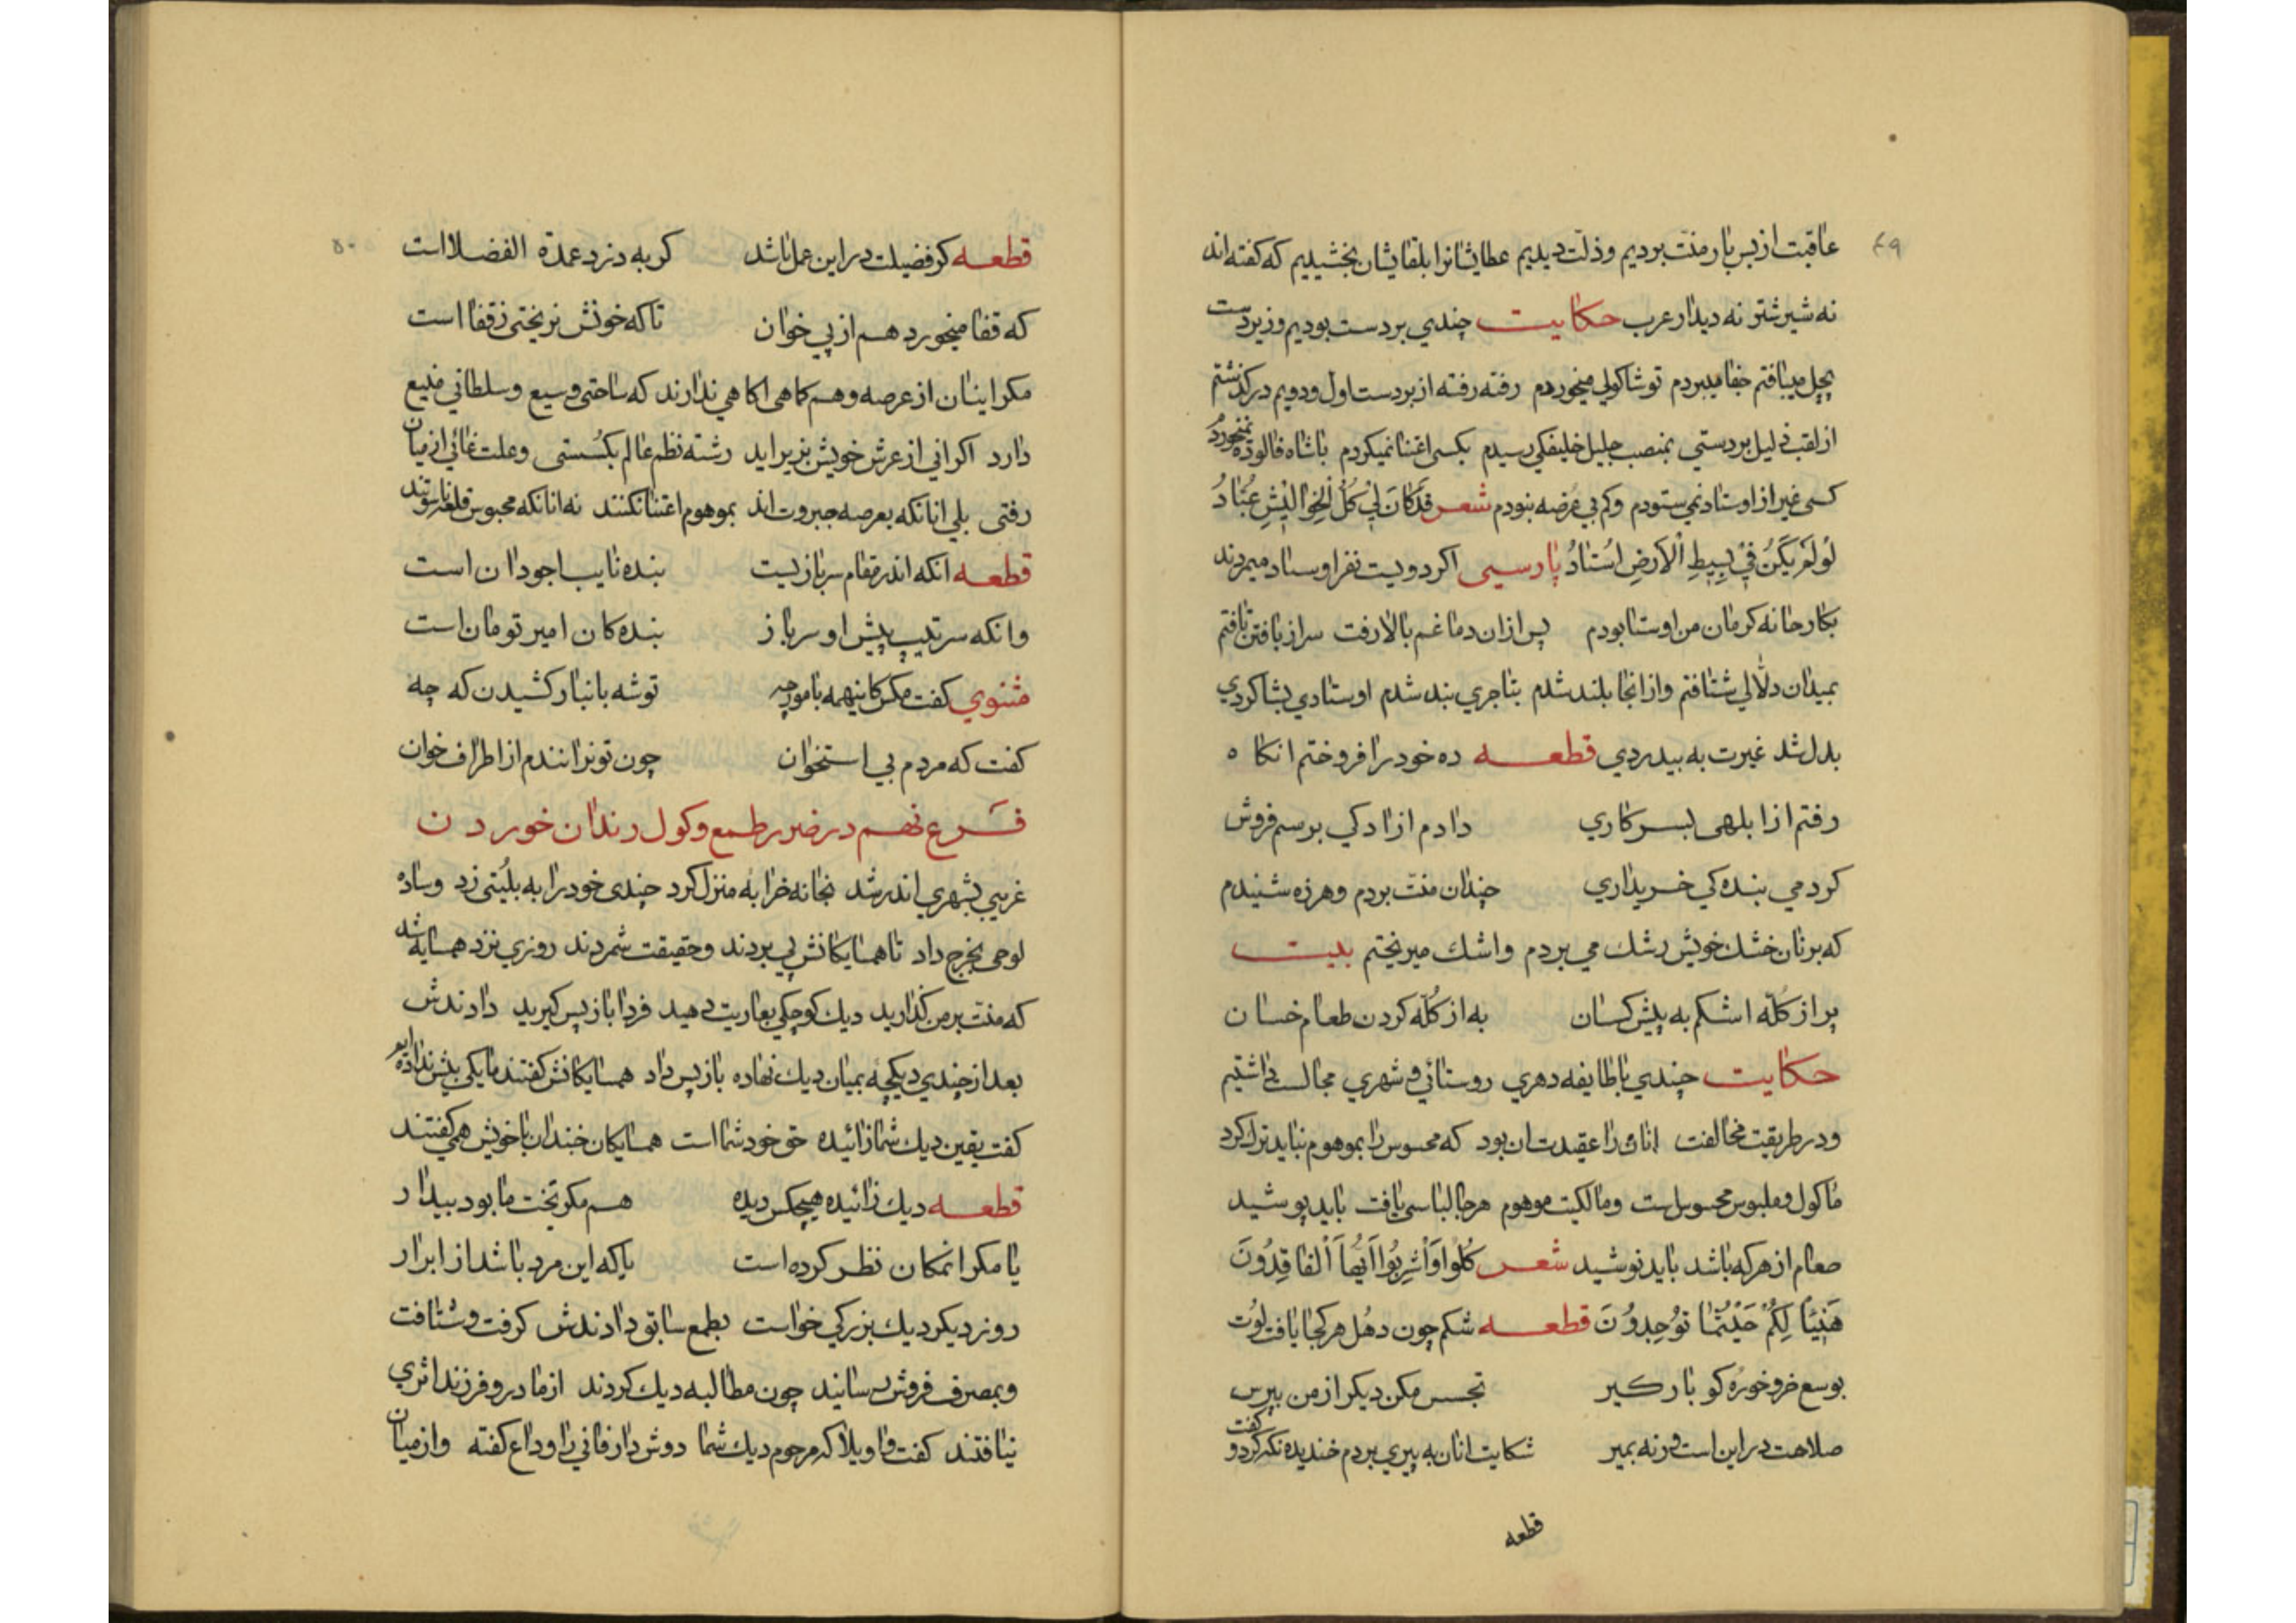 ۴۹
عاقبت از بس بار منت بردیم و ذلت دیدیم عطایشانرا بلقایشان بخشیدیم که کفته‌اند
نه شیر شتر نه دیدار عرب حکایت چندی بردست بودیم وزیردست
میبافتم جفا میبردم توشاکولی میخوردم رفته رفته از بردست اول و دویم درکذشتم
از لقب ذلیل بردستی بمنصب جلیل خلیفکی رسیدم بکسی اعتنا نمیکردم باشاه فالوده نمیخوردم
کسی غیر از اوستاد نمی‌ستودم وکم بی عرضه نبودم شعر
لَولَم یَکُن فی بسیطِ الاَرضِ اُستادُ پارسی اکر دویست نفر اوستاد میمردند
بکارخانه کرمان من اوستا بودم پس از ان دماغم بالا رفت سر از بافتن تافتم
بمیدان دلالی شتافتم واز انجا بلند شدم بتاجری بند شدم اوستادی بشاکردی
بدل شد غیرت به بیدردی قطعه ده خود را فروختم انکاه
رفتم از ابلهی بسرکاری دادم ازادکی برسم فروش
کردمی بنده کی خریداری چندان منت بردم وهرزه شنیدم
که برنان خشك خویش رشك می بردم واشك میریختم بیت
پر از کلّه اشکم به پیش کسان به از کلّه کردن طعام خسان
حکایت چندی باطایفه دهری روستائی و شهری مجالست داشتیم
ودر طریقت مخالفت انان را عقیدت ان بود که محسوس را بموهوم نباید ترك کرد
ماکول وملبوس محسوس است ومالکیت موهوم هرجا لباسی یافت باید پوشید
طعام از هرکه باشد باید نوشید شعر کُلُوا وَاشرِبُوا اَیُّهَا الفاقِدُونَ
هَنیئاً لَکُم حَیثُما تُوجِدُونَ قطعه شکم چون دهُل هرکجا یافت لوُت
بوسع خر و خورُه کو بارکیر تجسس مکن دیکر از من بپرس
صلاحت در این است ورنه بمیر شکایت انان به پیری بردم خندیده نکر کرد و کفت
قطعه
۵۰
قطعه کر فضیلت در این عمل باشد کربه دزد عمدة الفضلا است
که قفا میخورد هم از پی خوان تا که خونش نریختی زقفا است
مکر اینان از عرصه وهم کاهی اکاهی ندارند که ساحتی وسیع وسلطانی منیع
دارد اکر انی از عرش خویش بزیر اید رشته نظم عالم بکُسستی وعلت غائی از میان
رفتی بلی انانکه بعرصه جبروت اند بموهوم اعتنا نکنند نه انانکه محبوس قلعه ناسوتند
قطعه انکه اندر مقام سربازیست بنده نایب اجودان است
وانکه سرتیپ پیش او سرباز بنده کان امیر تومان است
مثنوی کفت مکس کاینهمه بامورچه توشه بانبار کشیدن که چه
کفت که مردم بی استخوان چون تو نرانندم از اطراف خوان
فرع نهم در ضرر طمع وکول رندان خوردن
غریبی بشهری اندر شد بخانه خرابه منزل کرد چندی خود را به بلیتی زد وساده
لوحی بخرج داد تا همسایکانش پی بردند وحقیقت شمردند روزی نزد همسایه شد
که منت بر من کذارید دیك کوچکی بعاریت دهید فردا باز پس کیرید دادندش
بعد از چندی دیکچه بمیان دیك نهاده باز پس داد همسایکانش کفتند ما یکی بیش نداده ایم
کفت یقین دیك شما زائیده حق خود شما است همسایکان خندان باخویش همی کفتند
قطعه دیك زائیده هیچکس دیده هم مکر بخت ما بود بیدار
یا مکر انمکان نظر کرده است یا که این مرد باشد از ابرار
روز دیکر دیك بزرکی خواست بطمع سابق دادندش کرفت وشتافت
وبمصرف فروش رسانید چون مطالبه دیك کردند از مادر وفرزند اثری
نیافتند کفت واویلا که مرحوم دیك شما دوش دار فانی را وداع کفته واز میان